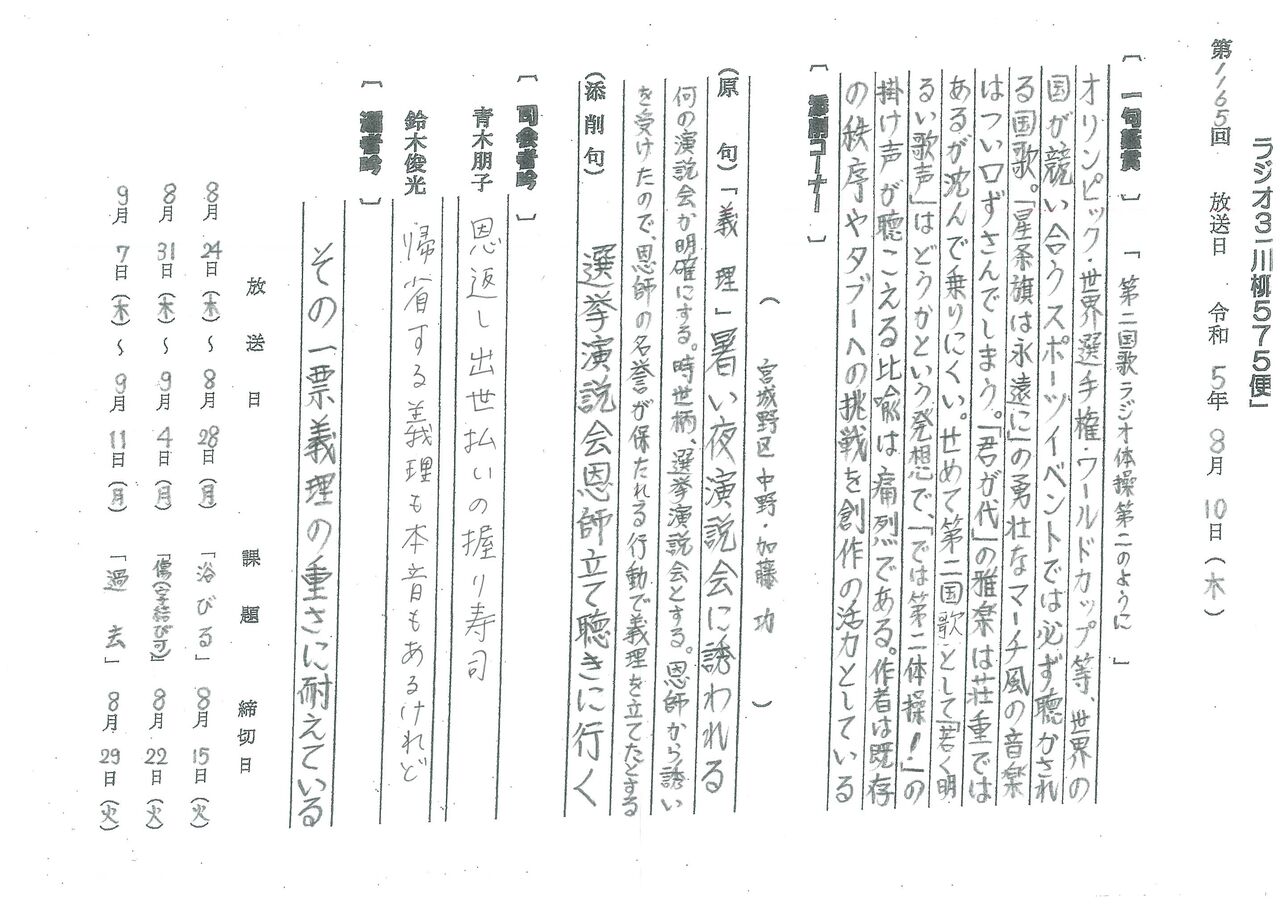 ラジオ3「川柳575便」
第1165回　放送日　令和5年8月10日（木）
［一句鑑賞］「第二国歌ラジオ体操第二のように」
オリンピック・世界選手権・ワールドカップ等、世界の
国が競い合うスポーツイベントでは必ず聴かされ
る国歌。「星条旗は永遠に」の勇壮なマーチ風の音楽
はつい口ずさんでしまう。「君が代」の雅楽は荘重では
あるが沈んで乗りにくい。せめて第二国歌として「若く明
るい歌声」はどうかという発想で、「では第二体操！」の
掛け声が聴こえる比喩は痛烈である。作者は既存
の秩序やタブーへの挑戦を創作の活力としている
［添削コーナー］
（宮城野区中野・加藤　功）
（原　句）「義　理」暑い夜演説会に誘われる
何の演説会か明確にする。時世柄、選挙演説会とする。恩師から誘い
を受けたので、恩師の名誉が保たれる行動で義理を立てたとする
（添削句）選挙演説会恩師立て聴きに行く
［司会者吟］
青木朋子　恩返し出世払いの握り寿司
鈴木俊光　帰省する義理も本音もあるけれど
［選者吟］
その一票義理の重さに耐えている
放送日　課題　締切日
8月24日（木）～8月28日（月）「浴びる」8月15日（火）
8月31日（木）～9月4日（月）「傷（字結び可）」8月22日（火）
9月7日（木）～9月11日（月）「過去」8月29日（火）